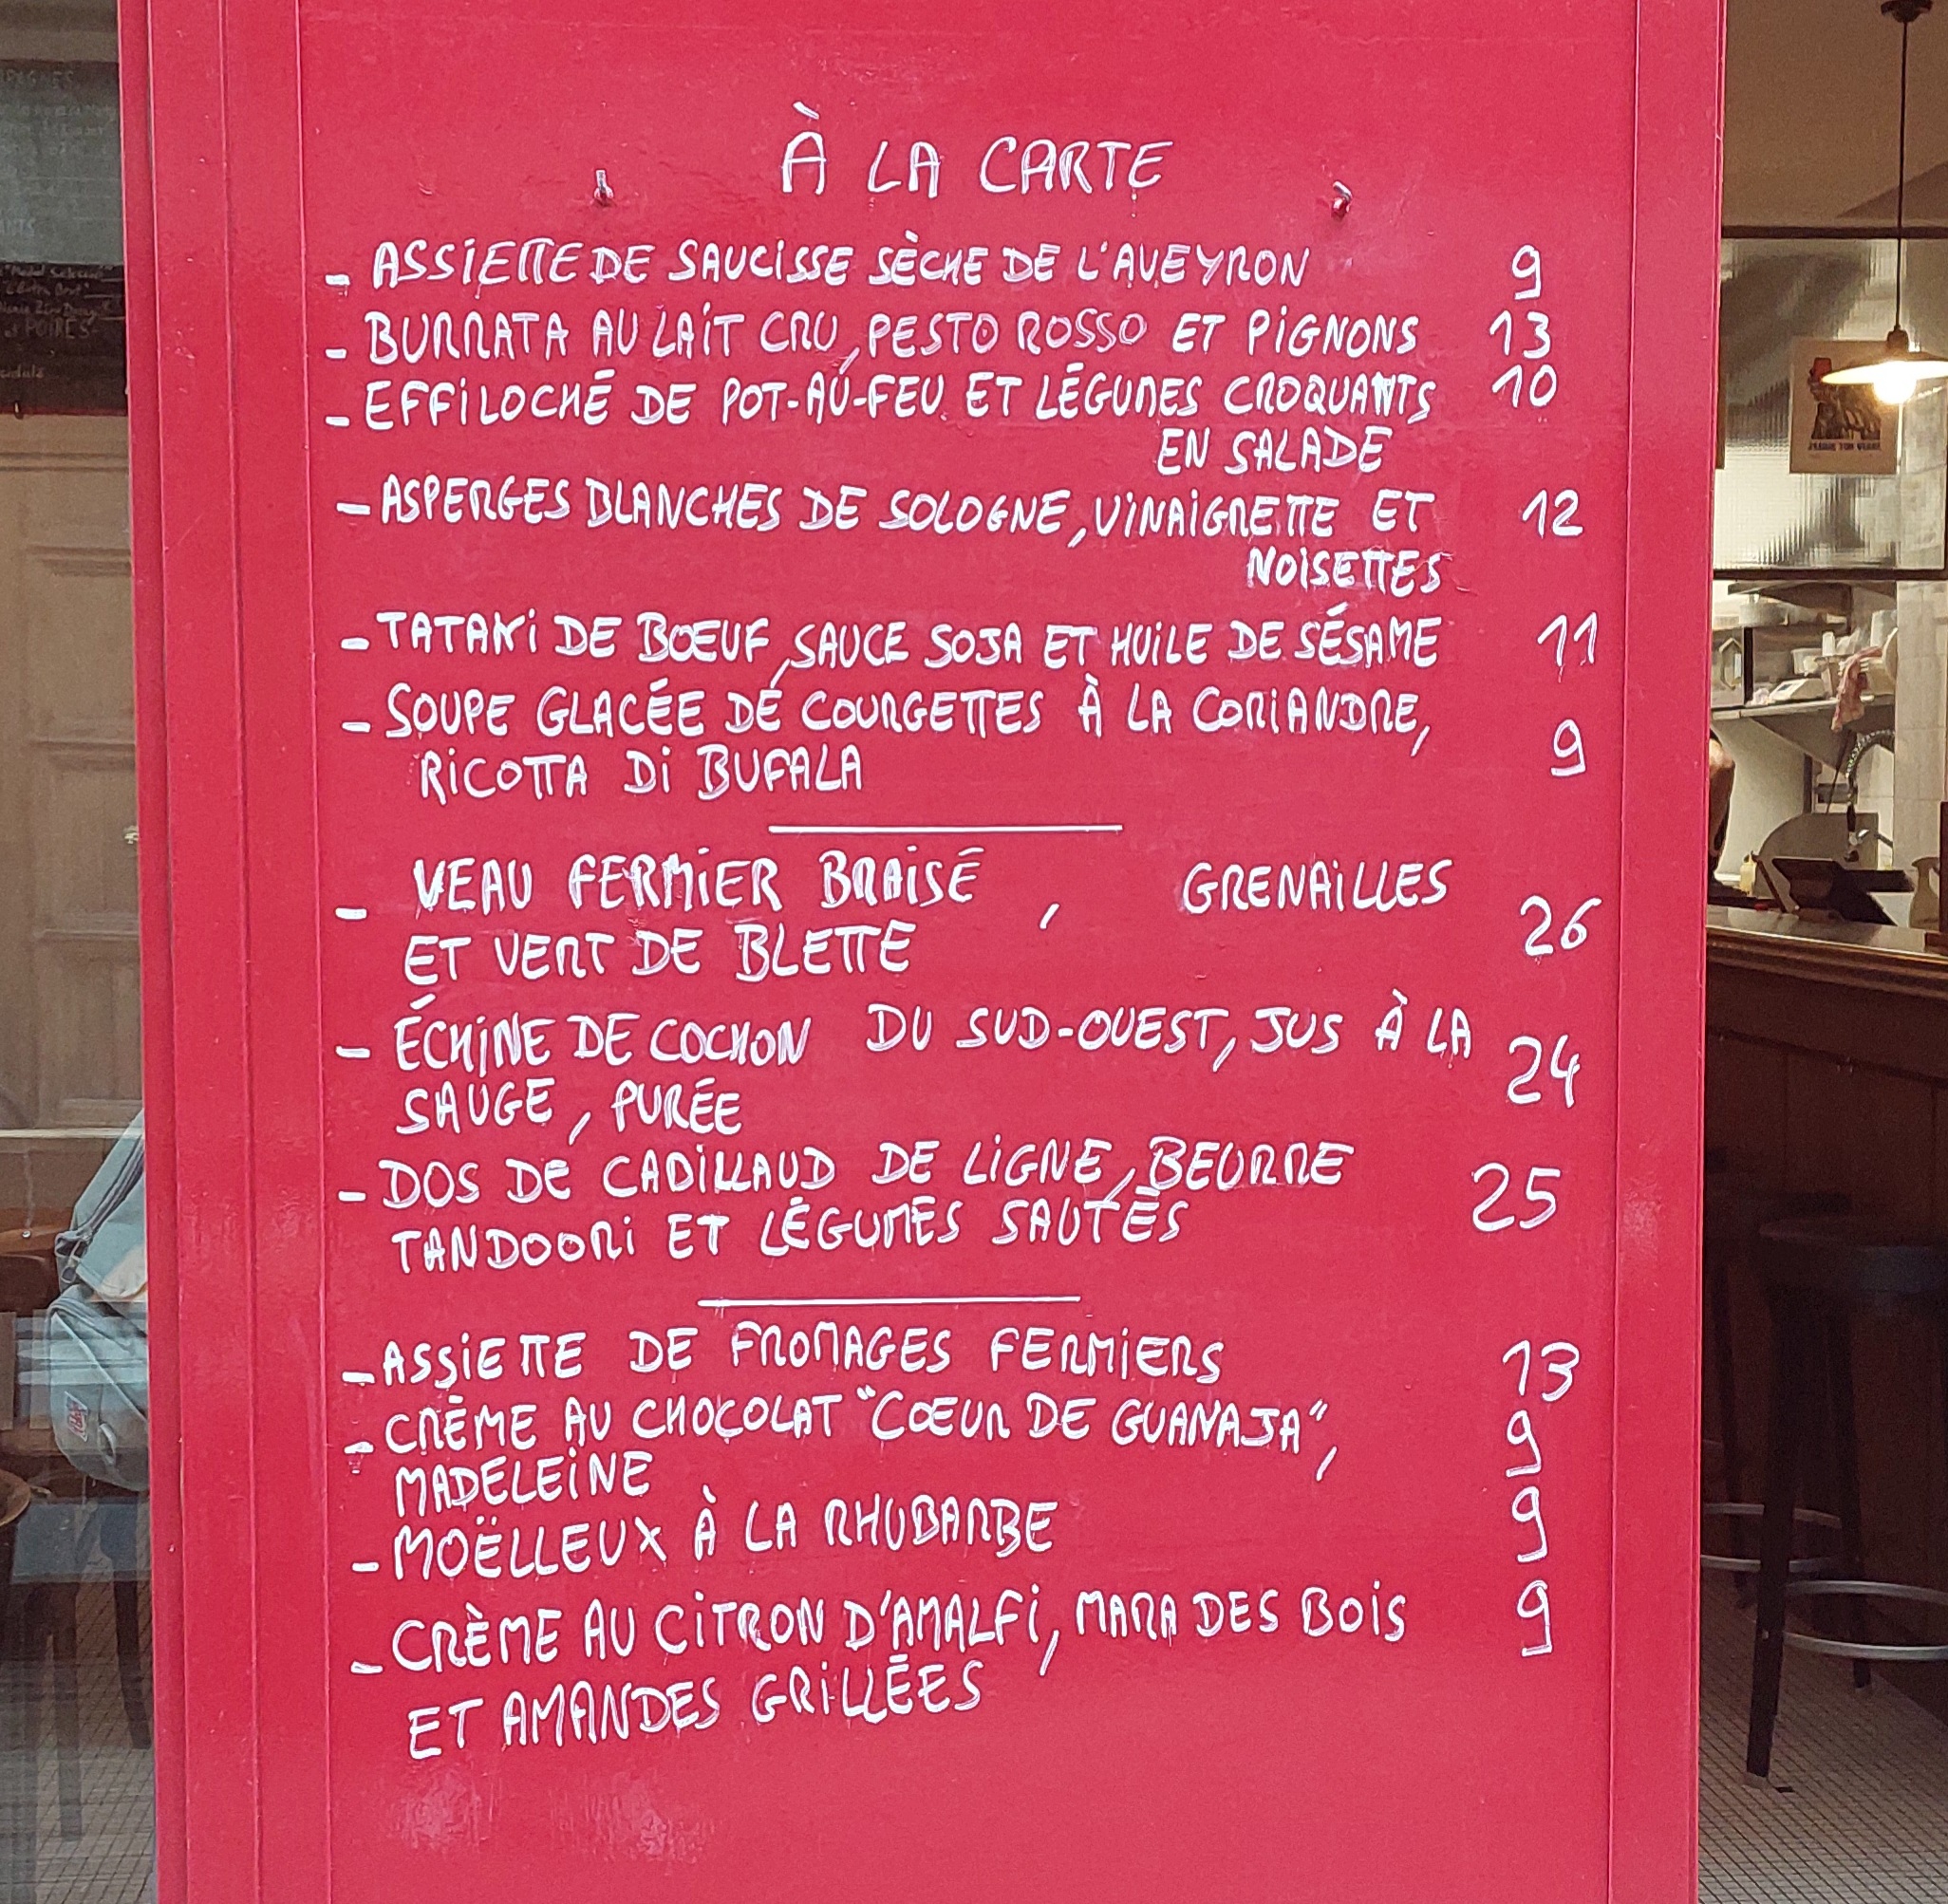 À LA CARTE
- ASSIETTE DE SAUCISSE SÈCHE DE L'AVEYRON 9
- BURRATA AU LAIT CRU, PESTO ROSSO ET PIGNONS 13
- EFFILOCHÉ DE POT-AU-FEU ET LÉGUMES CROQUANTS 10
EN SALADE
- ASPERGES BLANCHES DE SOLOGNE, VINAIGRETTE ET 12
NOISETTES
- TATAKI DE BŒUF, SAUCE SOJA ET HUILE DE SÉSAME 11
- SOUPE GLACÉE DE COURGETTES À LA CORIANDRE,
RICOTTA DI BUFALA 9
- VEAU FERMIER BRAISÉ, GRENAILLES
ET VERT DE BLETTE 26
- ÉCHINE DE COCHON DU SUD-OUEST, JUS À LA
SAUGE, PURÉE 24
- DOS DE CADILLAUD DE LIGNE, BEURRE
TANDOORI ET LÉGUMES SAUTÉS 25
- ASSIETTE DE FROMAGES FERMIERS 13
- CRÈME AU CHOCOLAT "CŒUR DE GUANAJA", 9
MADELEINE
- MOËLLEUX À LA RHUBARBE 9
- CRÈME AU CITRON D'AMALFI, MARA DES BOIS 9
ET AMANDES GRILLÉES